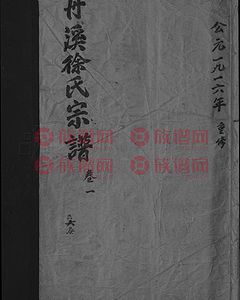 公元一九一六年 重修
丹溪徐氏宗譜 卷一
族谱网 族谱网 族谱网